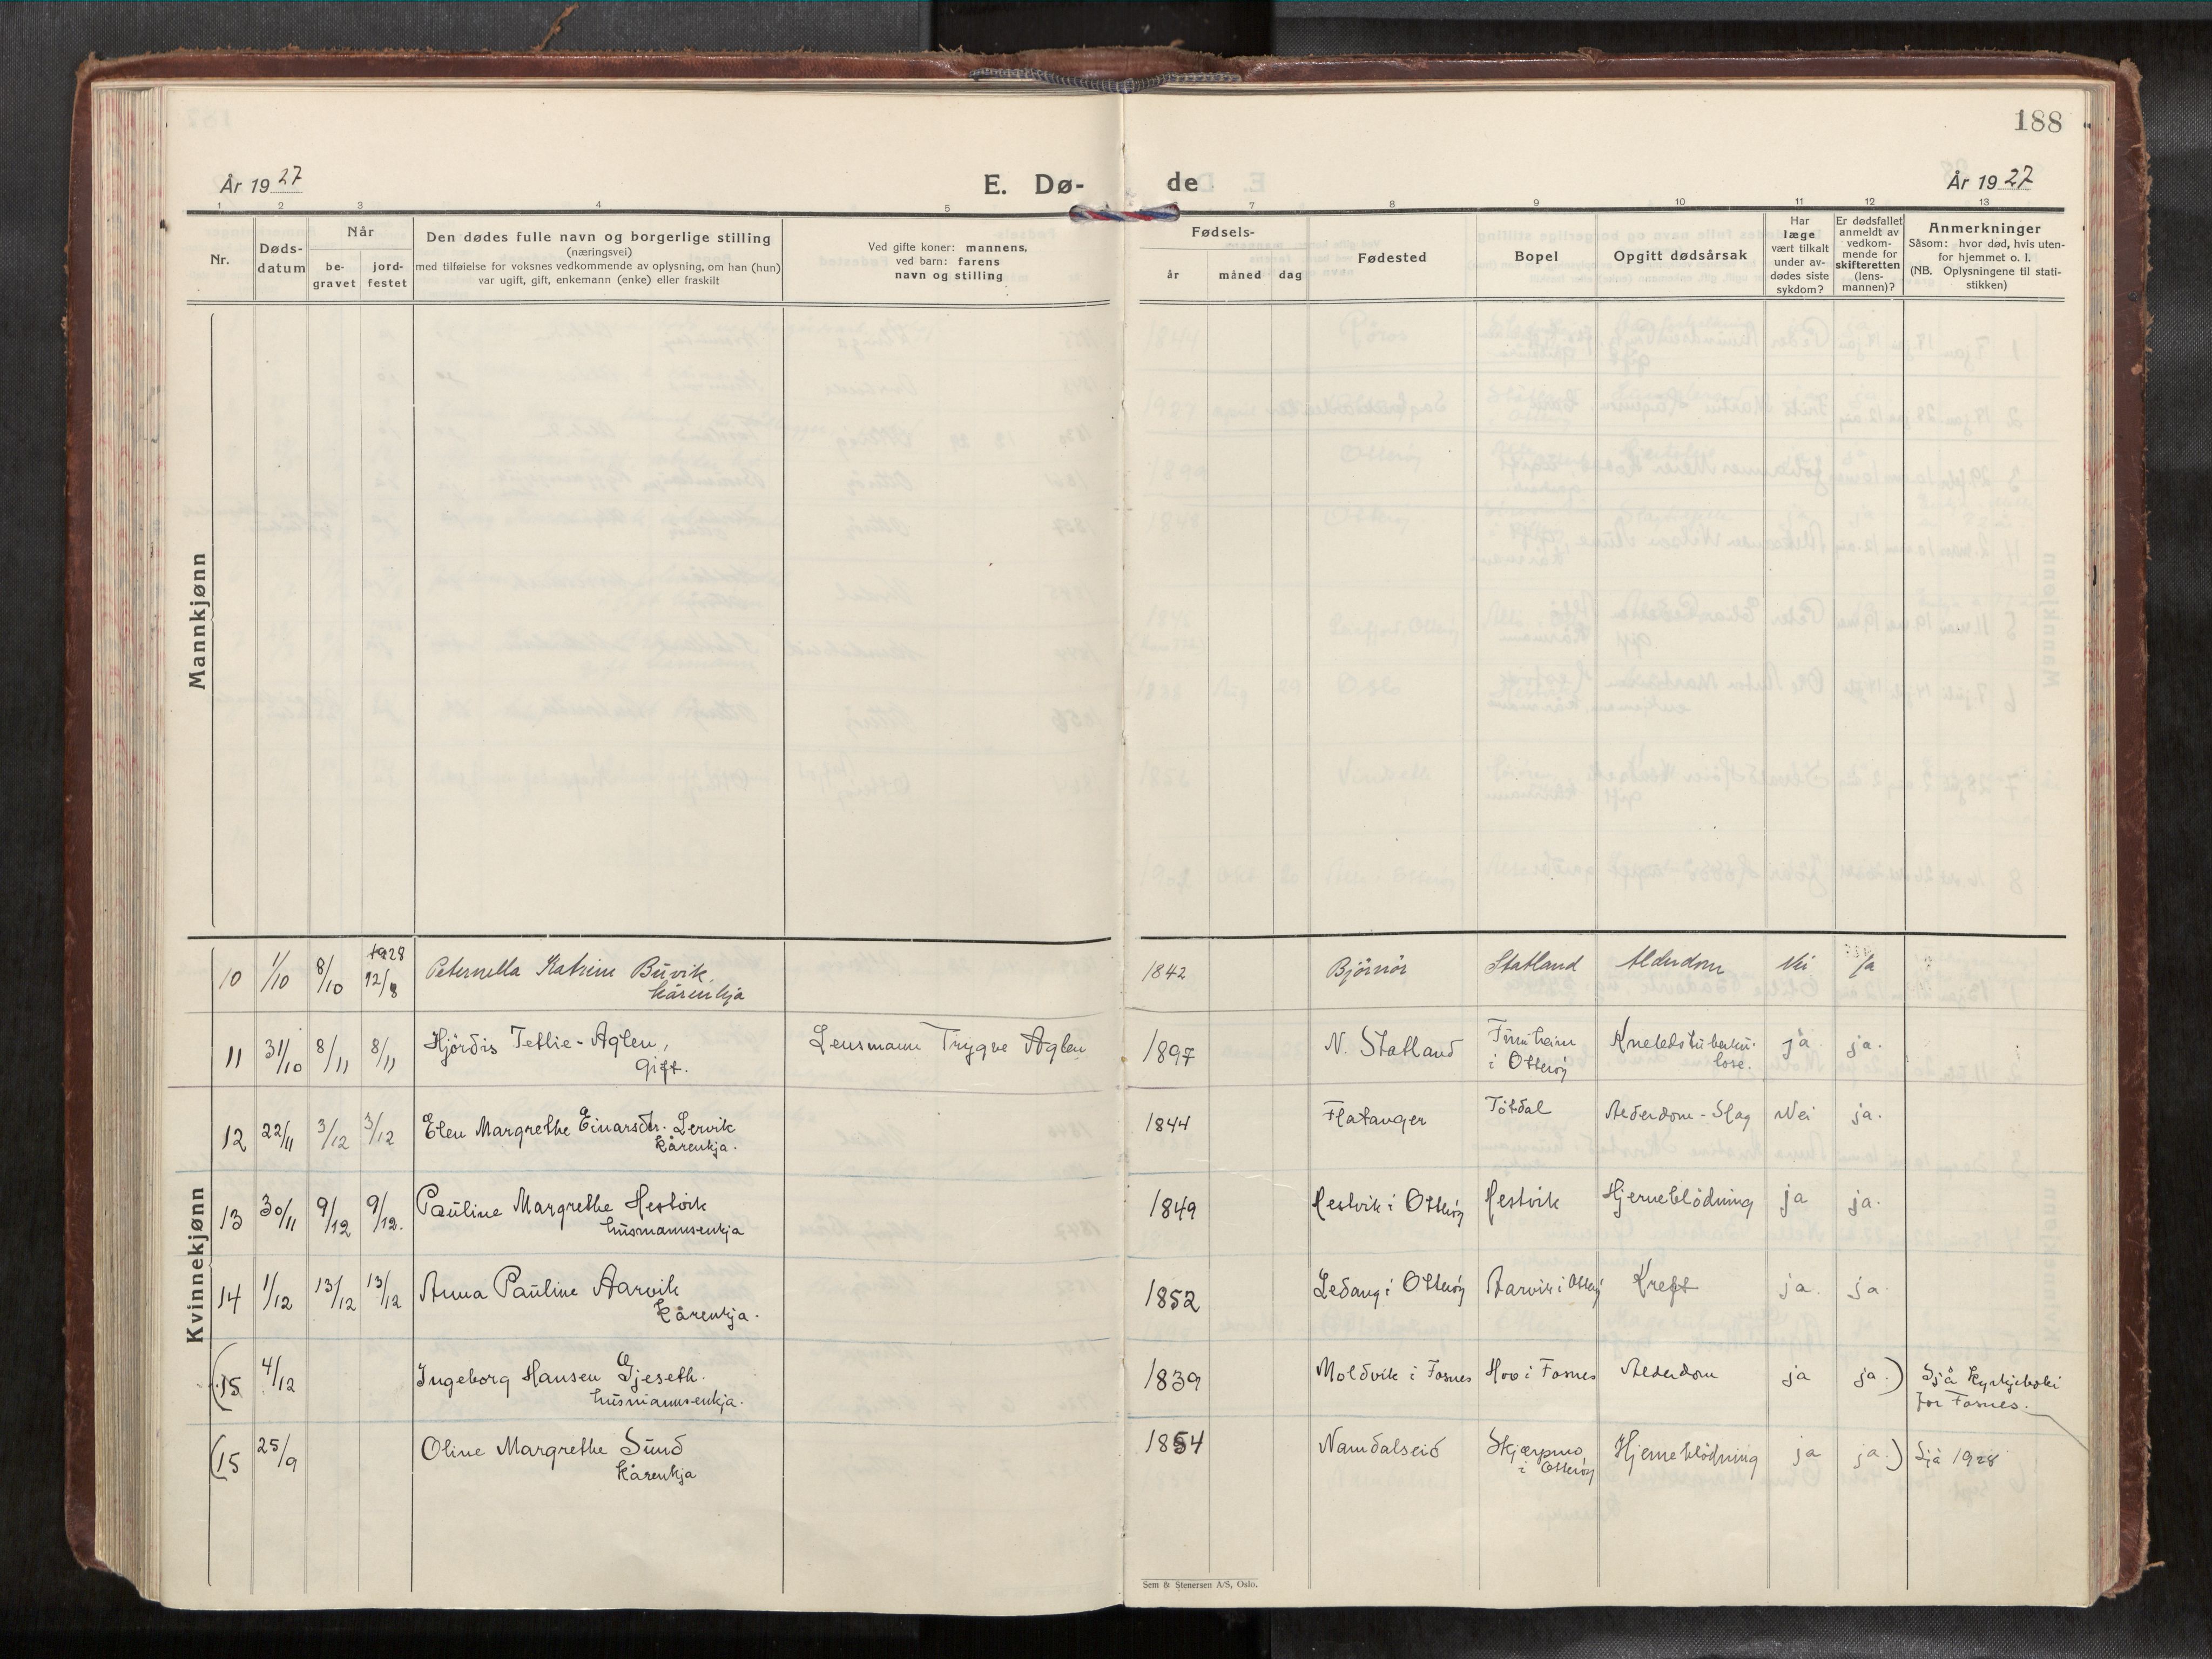 188
År 1927
E. Dø-
de
År 1927
1 2 3 4 5 7 8 9 10 11 12 13
Nr.
Døds-
datum
Når
be-
gravet
jord-
festet
Den dødes fulle navn og borgerlige stilling
(næringsvei)
med tilføielse for voksnes vedkommende av oplysning, om han (hun)
var ugift, gift, enkemann (enke) eller fraskilt
Ved gifte koner: mannens,
ved barn: farens
navn og stilling
Fødsels-
år måned dag
Fødested
Bopel
Opgitt dødsårsak
Har
læge
vært tilkalt
under av-
dødes siste
sykdom?
Er dødsfallet
anmeldt av
vedkom-
mende for
skifteretten
(lens-
mannen)?
Anmerkninger
Såsom: hvor død, hvis uten-
for hjemmet o. l.
(NB. Oplysningene til stati-
stikken)
Mannkjønn
Kvinnekjønn
1928
10 1/10 8/10 12/8 Peternella Katrine Buvik, 1842 Bjørnör Statland Alderdom Nei Ja
kårenkja
11 31/10 8/11 8/11 Hjördis Tetlie-Aglen, Lensmann Trygve Aglen 1897 N. Statland Finnheim Kneledstuberku- ja ja.
gift. i Otteröy lose.
12 22/11 3/12 3/12 Elen Margrethe Einarsdtr. Lervik 1844 Flatanger Tötdal Alderdom - Slag Nei ja.
kårenkja.
13 30/11 9/12 9/12. Pauline Margrethe Hestvik 1849 Hestvik i Otteröy Hestvik Hjerneblödning ja ja.
husmannsenkja
14 1/12 13/12 13/12 Anna Pauline Aarvik 1852 Ledang i Otteröy Aarvik i Otteröy Kreft ja. ja.
kårenkja.
(15 4/12 Ingeborg Hansen Gjeseth. 1839 Moldvik i Fosnes Hov i Fosnes Alderdom ja ja.) Sjå Kyrkjeboki
husmannsenkja. for Fosnes.
(15 25/9 Oline Margrethe Sund 1854 Namdalseid Skjærpmo Hjerneblödning ja ja.) Sjå 1928
kårenkja i Otteröy
Sem & Stenersen A/S, Oslo.